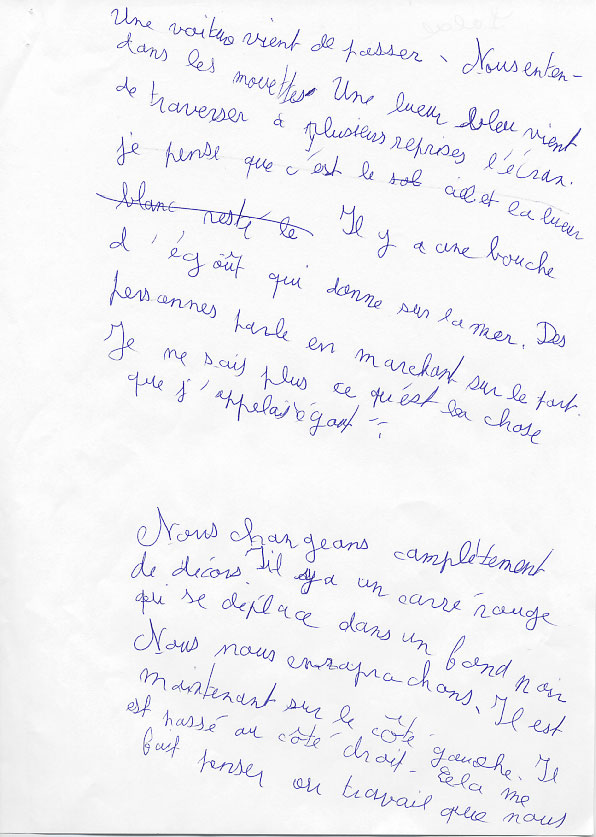 Une voiture vient de passer. Nous enten-
dans les mouettes. Une lueur bleu vient
de traverser à plusieurs reprises l'écran.
je pense que c'est le sol et la lueur
blanc resté le Il y a une bouche
d'égoût qui donne sur la mer. Des
personnes parle en marchant sur le port.
Je ne sais plus ce qu'est la chose
que j'appelais égout "
Nous changeans complètement
de décors. Il y a un carré rouge
qui se déplace dans un fond noir
Nous nous en raprachons. Il est
maintenant sur le côté gauche. Il
est passé au côté droit - Cela me
fait penser au travail que nous